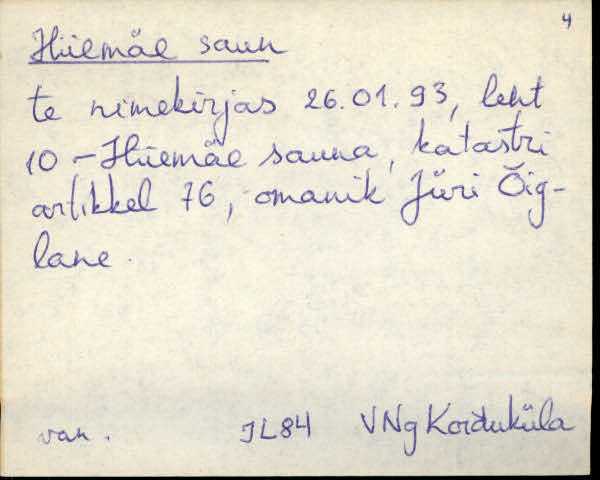 4
Hiiemäe saun
te nimekirjas 26.01.93, leht
10 - Hiiemäe sauna, katastri
artikkel 76, omanik Jüri Õig-
lane.
van. JL84 VNg Koiduküla